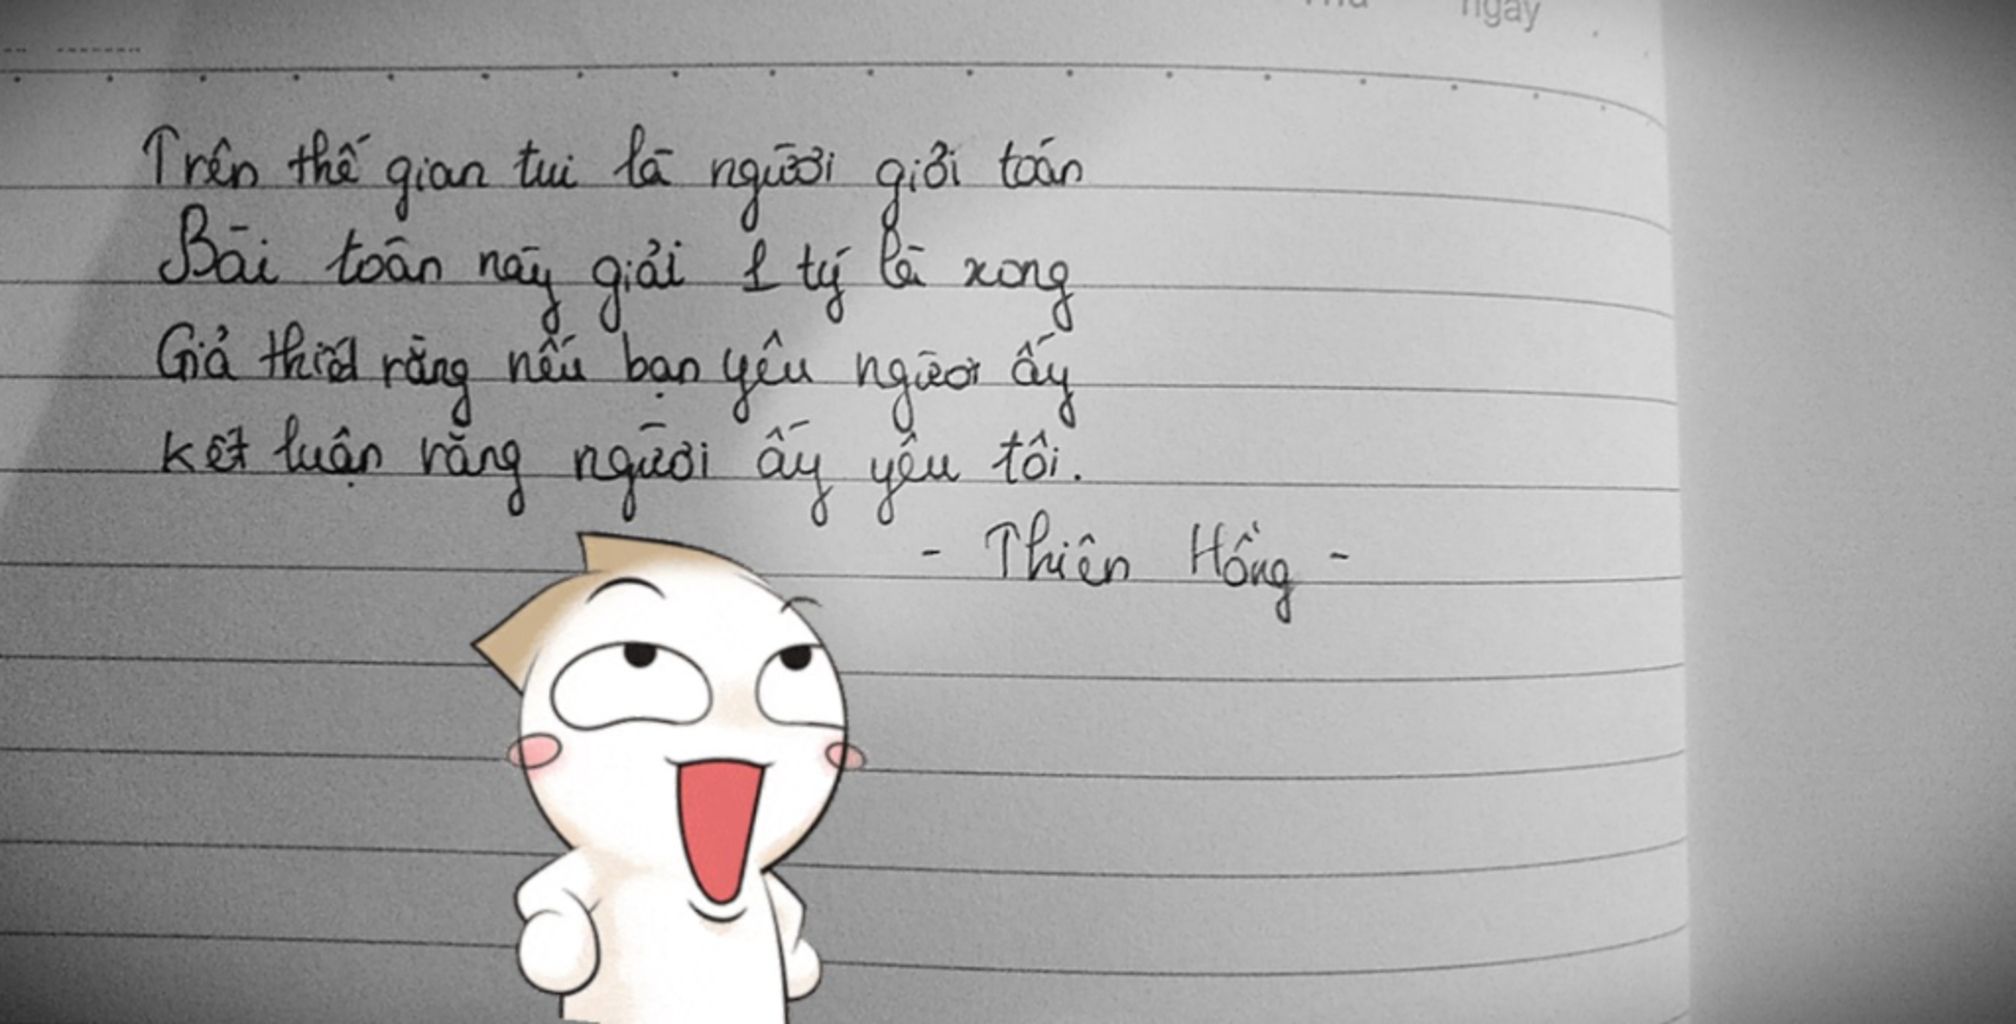 Thứ ngày
Trên thế gian tui là người giỏi toán
Bài toán này giải 1 tý là xong
Giả thiết rằng nếu bạn yêu người ấy
Kết luận rằng người ấy yêu tôi.
- Thiên Hồng -